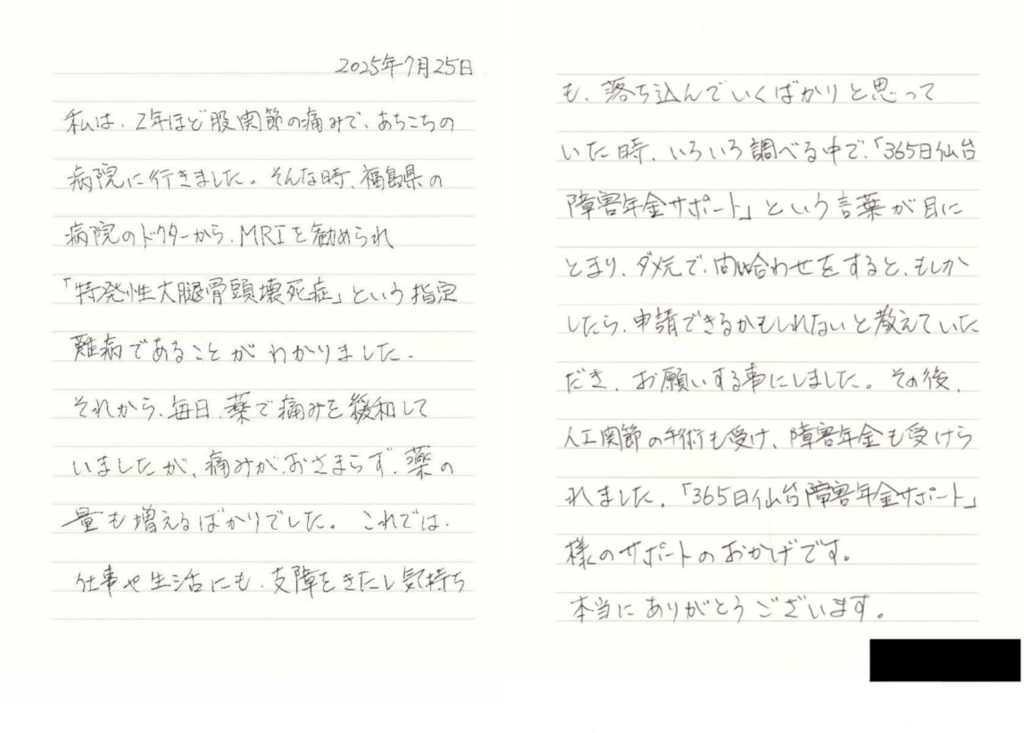 2025年7月25日
私は、2年ほど股関節の痛みで、あちこちの
病院に行きました。そんな時、福島県の
病院のドクターから、MRIを勧められ
「特発性大腿骨頭壊死症」という指定
難病であることがわかりました。
それから、毎日、薬で痛みを緩和して
いましたが、痛みがおさまらず、薬の
量も増えるばかりでした。これでは、
仕事や生活にも、支障をきたし気持ち
も、落ち込んでいくばかりと思って
いた時、いろいろ調べる中で、「365日仙台
障害年金サポート」という言葉が目に
とまり、ダメ元で、問い合わせをすると、もしか
したら、申請できるかもしれないと教えていた
だき、お願いする事にしました。その後、
人工関節の手術も受け、障害年金も受けら
れました。「365日仙台障害年金サポート」
様のサポートのおかげです。
本当にありがとうございます。